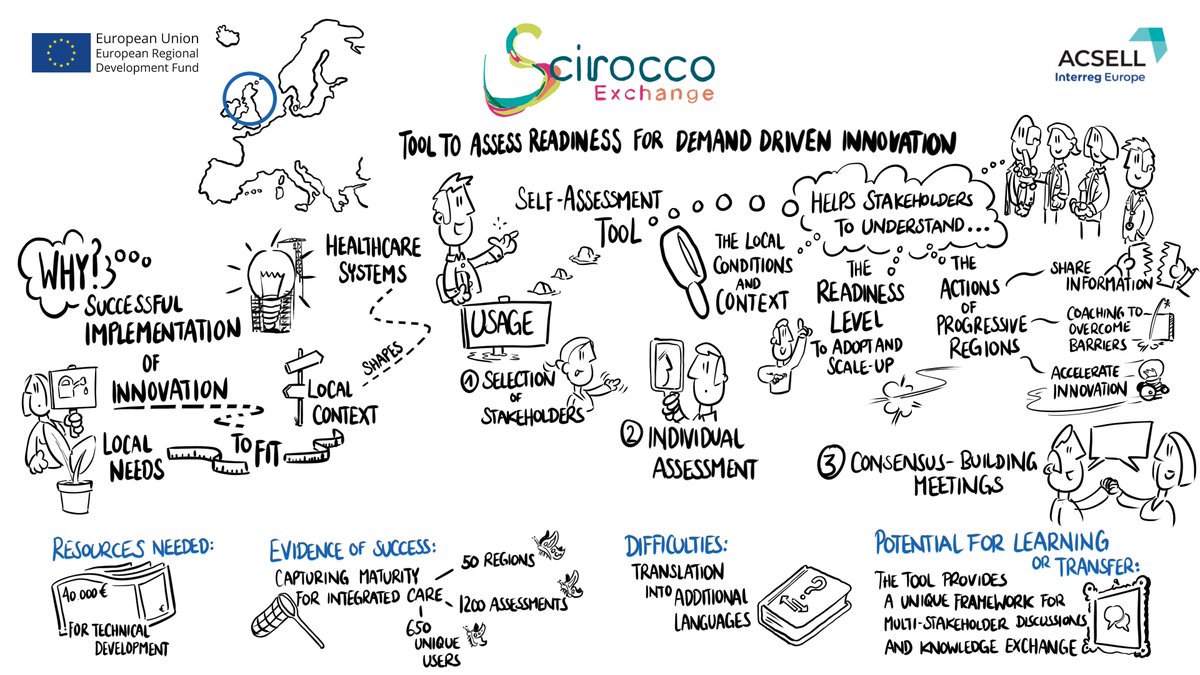 European Union
European Regional
Development Fund
Scirocco
Exchange
ACSELL
Interreg Europe
TOOL TO ASSESS READINESS FOR DEMAND DRIVEN INNOVATION
WHY?
SUCCESSFUL
IMPLEMENTATION
OF
INNOVATION
LOCAL
NEEDS
TO FIT
LOCAL
CONTEXT
SHAPES
HEALTHCARE
SYSTEMS
SELF-ASSESSMENT
TOOL
HELPS STAKEHOLDERS
TO UNDERSTAND...
THE LOCAL
CONDITIONS
AND
CONTEXT
THE
READINESS
LEVEL
TO ADOPT AND
SCALE-UP
THE
ACTIONS
OF
PROGRESSIVE
REGIONS
SHARE
INFORMATION
COACHING TO
OVERCOME
BARRIERS
ACCELERATE
INNOVATION
USAGE
1 SELECTION
OF
STAKEHOLDERS
2 INDIVIDUAL
ASSESSMENT
3 CONSENSUS-BUILDING
MEETINGS
RESOURCES NEEDED:
40 000€
€
FOR TECHNICAL
DEVELOPMENT
EVIDENCE OF SUCCESS:
CAPTURING MATURITY
FOR INTEGRATED CARE
50 REGIONS
1200 ASSESSMENTS
650
UNIQUE
USERS
DIFFICULTIES:
TRANSLATION
INTO ADDITIONAL
LANGUAGES
?
POTENTIAL FOR LEARNING
OR TRANSFER:
THE TOOL PROVIDES
A UNIQUE FRAMEWORK FOR
MULTI-STAKEHOLDER DISCUSSIONS
AND KNOWLEDGE EXCHANGE